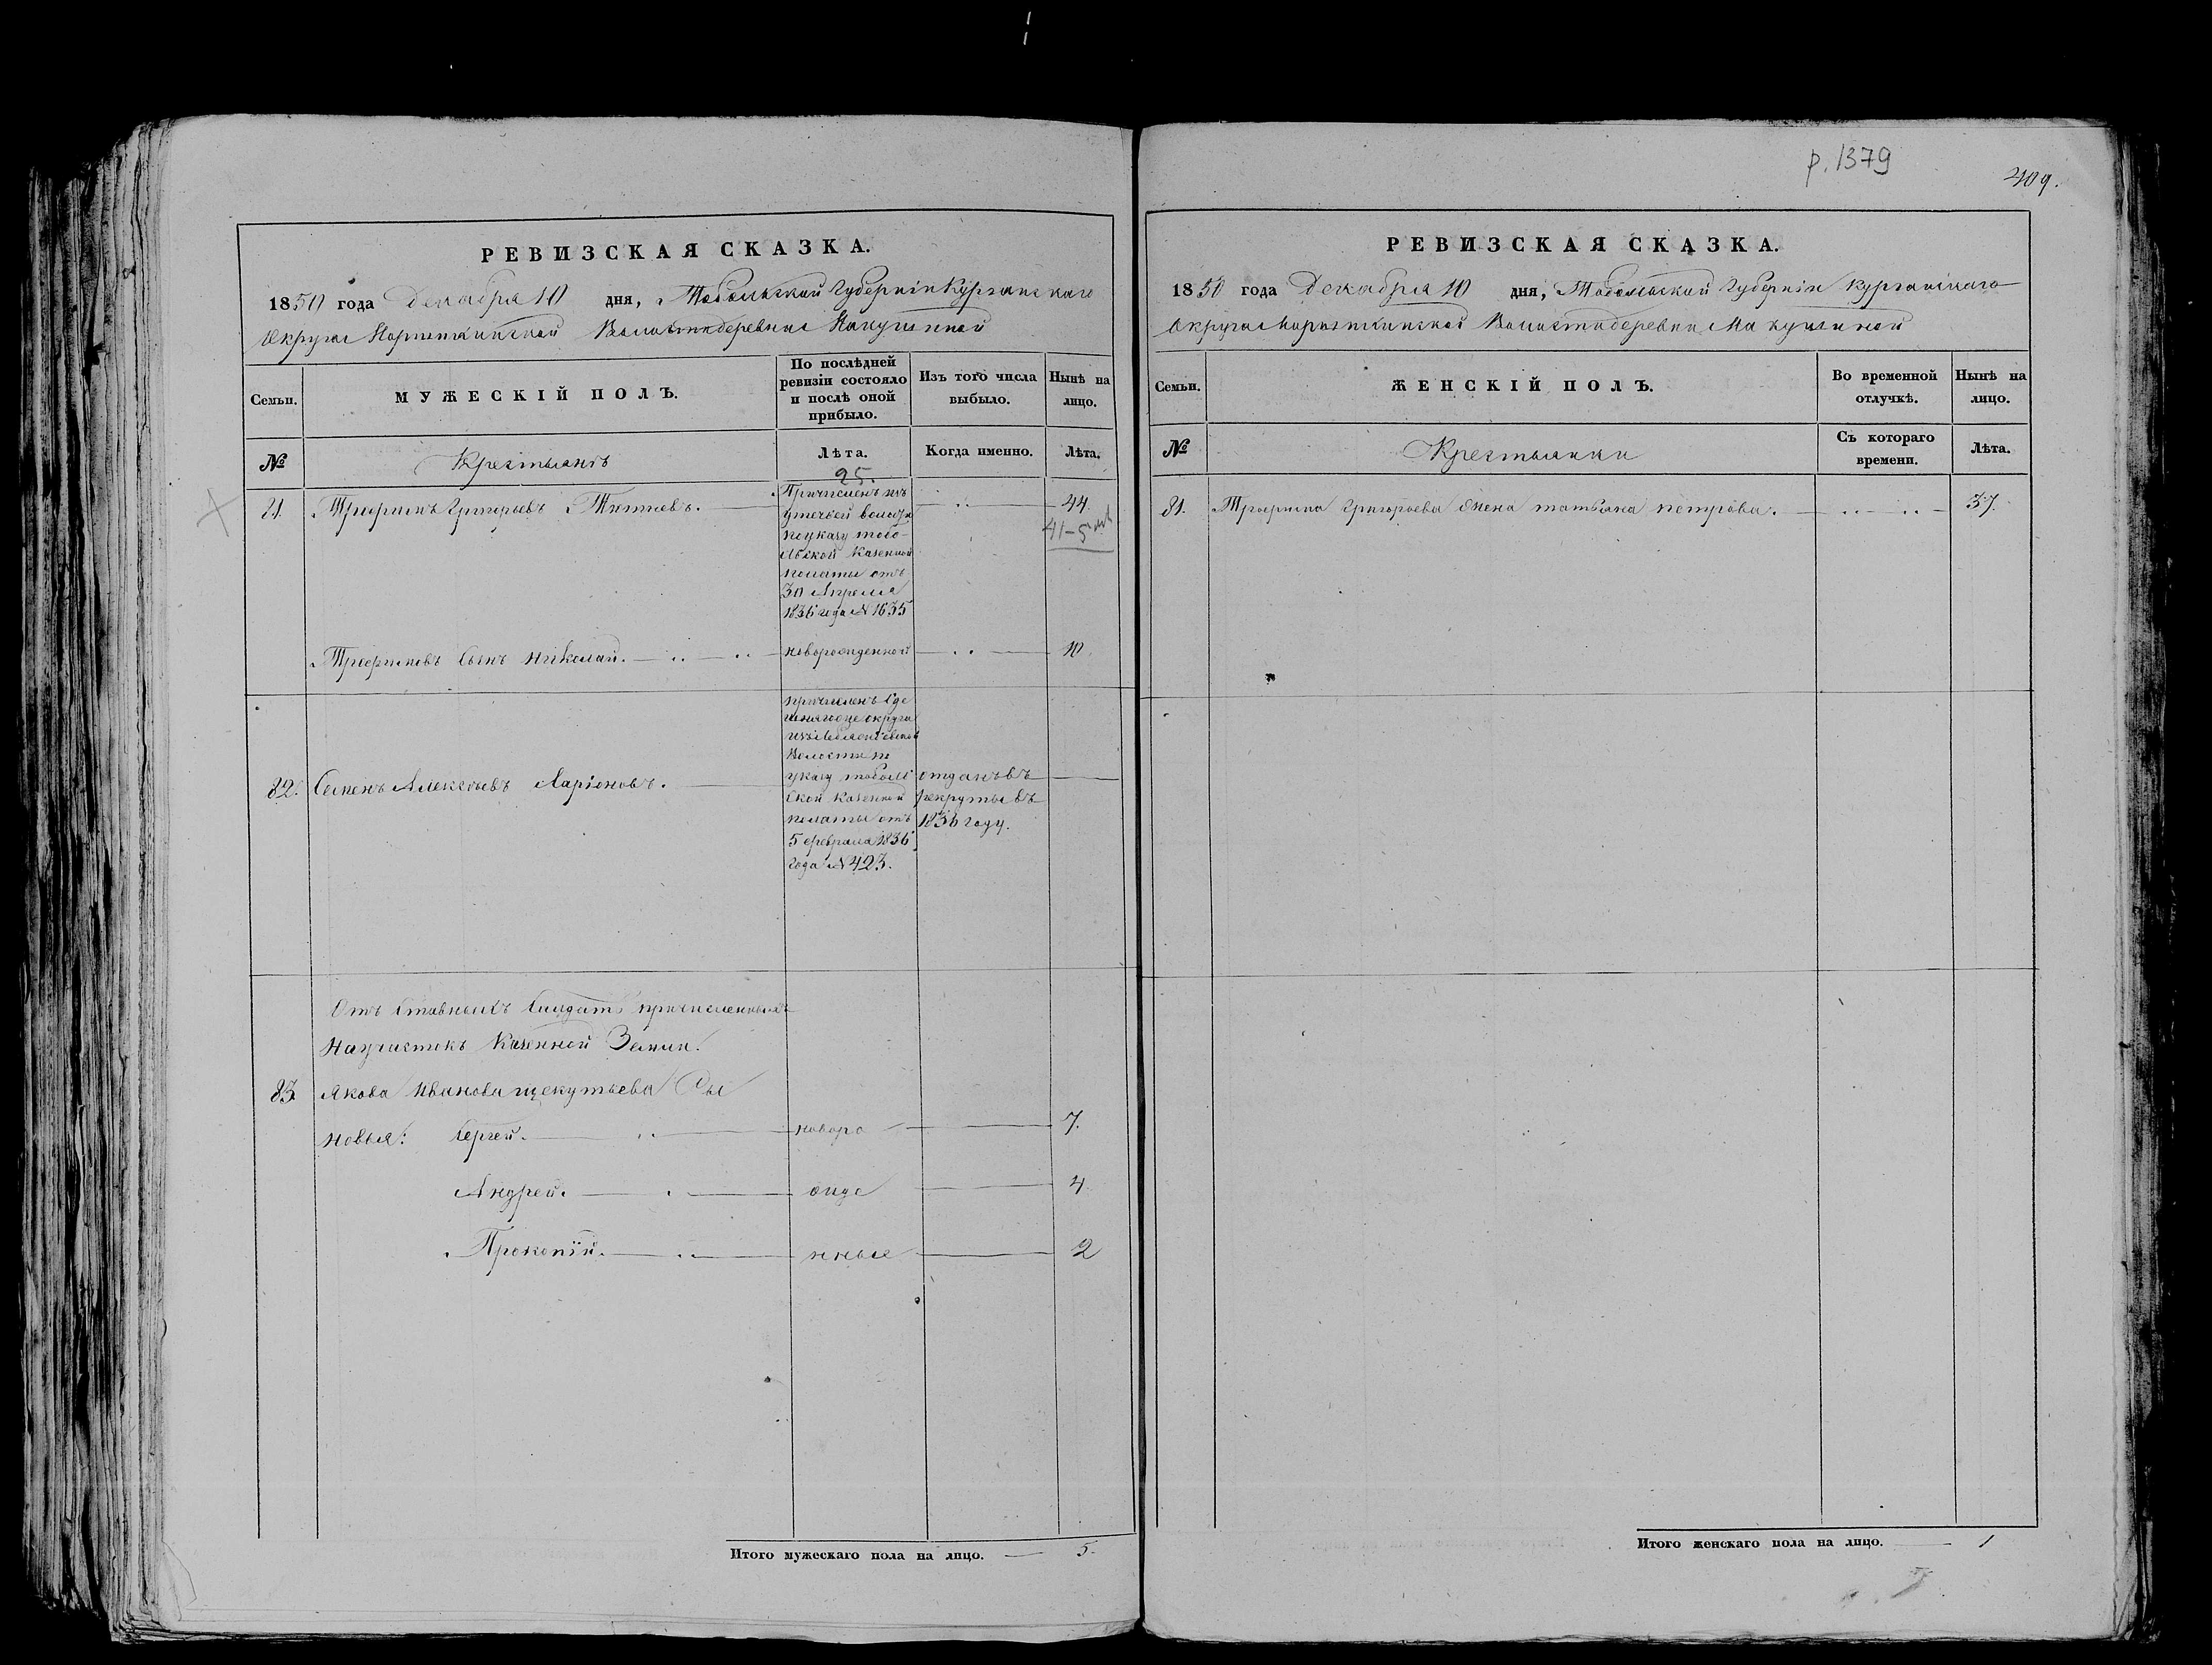 р. 1379
409.
РЕВИЗСКАЯ СКАЗКА.
1850 года Декабря 10 дня, Тобольской Губерніи Курганскаго
Округа Волости деревни Макушиной
Семьи.
МУЖЕСКІЙ ПОЛЪ.
По послѣдней
ревизіи состояло
и послѣ оной
прибыло.
Изъ того числа
выбыло.
Нынѣ на
лицо.
№
Крестьянъ
Лѣта.
Когда именно.
Лѣта.
25.
Григорьевъ
Причисленъ изъ
волости
по указу тобо-
льской Казенной
палаты отъ
30 Апреля
1836 года № 1635
44
41-5
Сынъ Николай.
новорожденной
10.
82. Семенъ Алексѣевъ Ларіоновъ.
причисленъ Зде
шняго же округа
Волости по
указу тоболь
ской Казенной
палаты отъ
5 февраля 1836
года № 423.
отданъ въ
рекруты въ
1836 году.
Отъ Ставныхъ Солдатъ причисленныхъ
На участокъ Казенной Земли.
83. Якова Иванова щекутьева Сы
новья: Сергей. новоро 7.
Андрей. жде 4
Прокопій. нные 2
Итого мужескаго пола на лицо. 5.
РЕВИЗСКАЯ СКАЗКА.
1850 года Декабря 10 дня, Тобольской Губерніи Курганскаго
Округа Волости деревни Макушиной
Семьи.
ЖЕНСКІЙ ПОЛЪ.
Во временной
отлучкѣ.
Нынѣ на
лицо.
№
Крестьянки
Съ котораго
времени.
Лѣта.
81. Григорьева жена татьяна петрова. 37.
Итого женскаго пола на лицо. 1